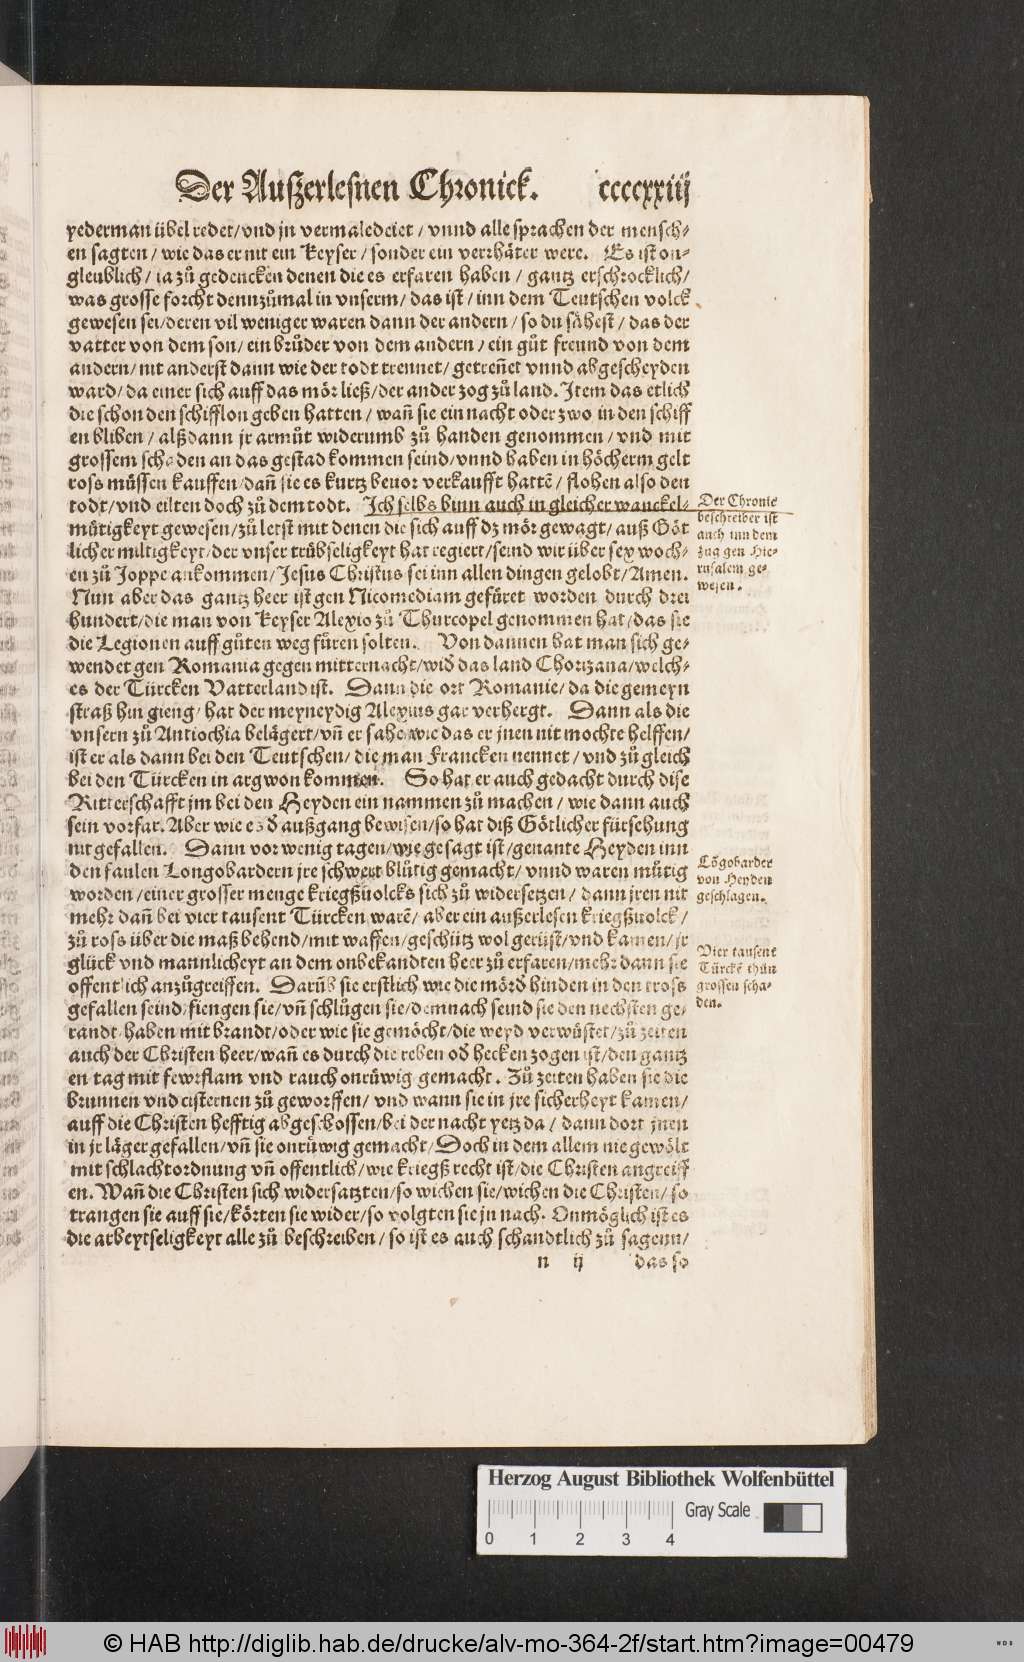 Der Außerlesnen Chronick. ccccxxiij
yederman übel redet/vnd jn vermaledeiet/ vnnd alle sprachen der mensch-
en sagten/ wie das er nit ein Keyser/ sonder ein verrhäter were. Es ist on-
gleublich/ ia zů gedencken denen die es erfaren haben/ gantz erschrocklich/
was grosse forcht dennzůmal in vnserm/ das ist/ inn dem Teutschen volck
gewesen sei/deren vil weniger waren dann der andern/ so du sähest/ das der
vatter von dem son/ ein brůder von dem andern/ ein gůt freund von dem
andern/ nit anderst dann wie der todt trennet/ getreñet vnnd abgescheyden
ward/ da einer sich auff das mör ließ/der ander zog zů land. Item das etlich
die schon den schifflon geben hatten/ wañ sie ein nacht oder zwo in den schiff
en bliben/ alßdann jr armůt widerumb zů handen genommen/ vnd mit
grossem schaden an das gestad kommen seind/vnnd haben in höcherm gelt
ross müssen kauffen/dañ sie es kurtz beuor verkaufft hattẽ/ flohen also den
todt/vnd eilten doch zů dem todt. Ich selbs binn auch in gleicher wanckel-
mütigkeyt gewesen/zů letst mit denen die sich auff dz mör gewagt/ auß Göt
licher miltigkeyt/der vnser trübseligkeyt hat regiert/seind wir über sex woch-
en zů Joppe ankommen/Jesus Christus sei inn allen dingen gelobt/Amen.
Nun aber das gantz heer ist gen Nicomediam gefüret worden durch drei
hundert/die man von Keyser Alexio zů Thurcopel genommen hat/das sie
die Legionen auff gůten weg füren solten. Von dannen hat man sich ge-
wendet gen Romania gegen mitternacht/wid das land Chorizana/welch-
es der Türcken Vatterland ist. Dann die ort Romanie/da die gemeyn
straß hin gieng/ hat der meyneydig Alexius gar verhergt. Dann als die
vnsern zů Antiochia belägert/vñ er sahe/wie das er jnen nit mochte helffen/
ist er als dann bei den Teutschen/die man Francken nennet/vnd zů gleich
bei den Türcken in argwon kommen. So hat er auch gedacht durch dise
Ritterschafft jm bei den Heyden ein nammen zů machen/ wie dann auch
sein vorfar. Aber wie es d außgang bewisen/so hat diß Götlicher fürsehung
nit gefallen. Dann vor wenig tagen/wie gesagt ist/genante Heyden inn
den faulen Longobardern jre schwert blůtig gemacht/ vnnd waren můtig
worden/einer grosser menge kriegßuolcks sich zů widersetzen/ dann jren nit
mehr dañ bei vier tausent Türcken warẽ/ aber ein außerlesen kriegßuolck/
zů ross über die maß behend/mit waffen/geschütz wol gerüst/vnd kamen/jr
glück vnd mannlicheyt an dem onbekandten heer zů erfaren/mehr dann sie
offentlich anzůgreiffen. Darüb sie erstlich wie die mörd hinden in den tross
gefallen seind/fiengen sie/vñ schlůgen sie/demnach seind sie den nechsten ge-
randt/haben mit brandt/oder wie sie gemöcht/die weyd verwüstet/zů zeiten
auch der Christen heer/wañ es durch die reben od hecken zogen ist/den gantz
en tag mit fewrflam vnd rauch onrüwig gemacht. Zů zeiten haben sie die
brunnen vnd cisternen zů geworffen/ vnd wann sie in jre sicherheyt kamen/
auff die Christen hefftig abgeschossen/bei der nacht yetz da/ dann dort jnen
in jr läger gefallen/vñ sie onrüwig gemacht/Doch in dem allem nie gewölt
mit schlachtordnung vñ offentlich/wie kriegß recht ist/die Christen angreiff
en. Wañ die Christen sich widersatzten/so wichen sie/wichen die Christen/ so
trangen sie auff sie/körten sie wider/so volgten sie jn nach. Onmöglich ist es
die arbeytseligkeyt alle zů beschreiben/ so ist es auch schandtlich zů sagenn/
n ij das so
Der Chronic
beschreiber ist
auch inn dem
zug gen Hie-
rusalem ge-
wesen.
Lõgobarder
von Heyden
geschlagen.
Vier tausent
Türckẽ thůn
grossen scha-
den.
Herzog August Bibliothek Wolfenbüttel
Gray Scale
0 1 2 3 4
© HAB http://diglib.hab.de/drucke/alv-mo-364-2f/start.htm?image=00479